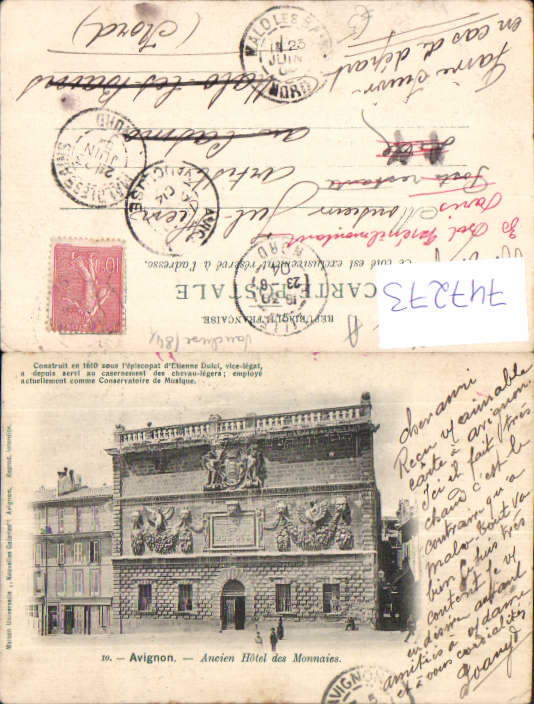 (Nord)
Malo les Bains
en cas de départ
Faire suivre
artiste
Poste restante
Paris
Monsieur
Ce côté est exclusivement réservé à l'adresse.
CARTE POSTALE
RÉPUBLIQUE FRANÇAISE.
Vaucluse (84)
747273
MALO LES BAINS
23
JUIN
NORD
10
Construit en 1610 sous l'épiscopat d'Etienne Dulci, vice-légat,
a depuis servi au casernement des chevau-légers; employé
actuellement comme Conservatoire de Musique.
Maison Universelle et Nouvelles Galeries, Avignon. Reprod. interdite.
10. — Avignon. — Ancien Hôtel des Monnaies.
cher ami
Reçu v/ aimable
carte à avignon.
Ici il fait très
chaud c'est le
contraire qu'a
malo. tout va
bien je suis très
content je v/
en disine autant
amitiés à v/ dame
et à vous cordialités
AVIGNON
5